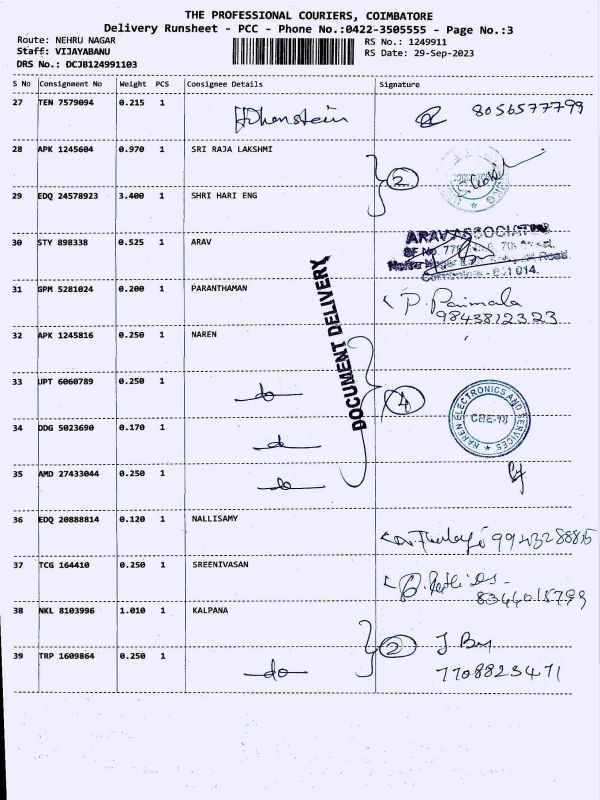 THE PROFESSIONAL COURIERS, COIMBATORE
Delivery Runsheet - PCC - Phone No.:0422-3505555 - Page No.:3
Route: NEHRU NAGAR RS No.: 1249911
Staff: VIJAYABANU RS Date: 29-Sep-2023
DRS No.: DCJB124991103
S No Consignment No Weight PCS Consignee Details Signature
27 TEN 7579094 0.215 1 Hohenstein 8056577799
28 APK 1245604 0.970 1 SRI RAJA LAKSHMI
2
29 EDQ 24578923 3.400 1 SHRI HARI ENG
30 STY 898338 0.525 1 ARAV
ARAV ASSOCIATES
DOCUMENT DELIVERY
31 GPM 5281024 0.200 1 PARANTHAMAN P. Parimala
9843812323
32 APK 1245816 0.250 1 NAREN
33 UPT 6060789 0.250 1 do 4
NAREN ELECTRONICS AND SERVICES
CBE-14
34 DDG 5023690 0.170 1 do
35 AMD 27433044 0.250 1 do
36 EDQ 20888814 0.120 1 NALLISAMY 9943288815
37 TCG 164410 0.250 1 SREENIVASAN
8344015799
38 NKL 8103996 1.010 1 KALPANA
2
39 TRP 1609864 0.250 1 do 7708823471